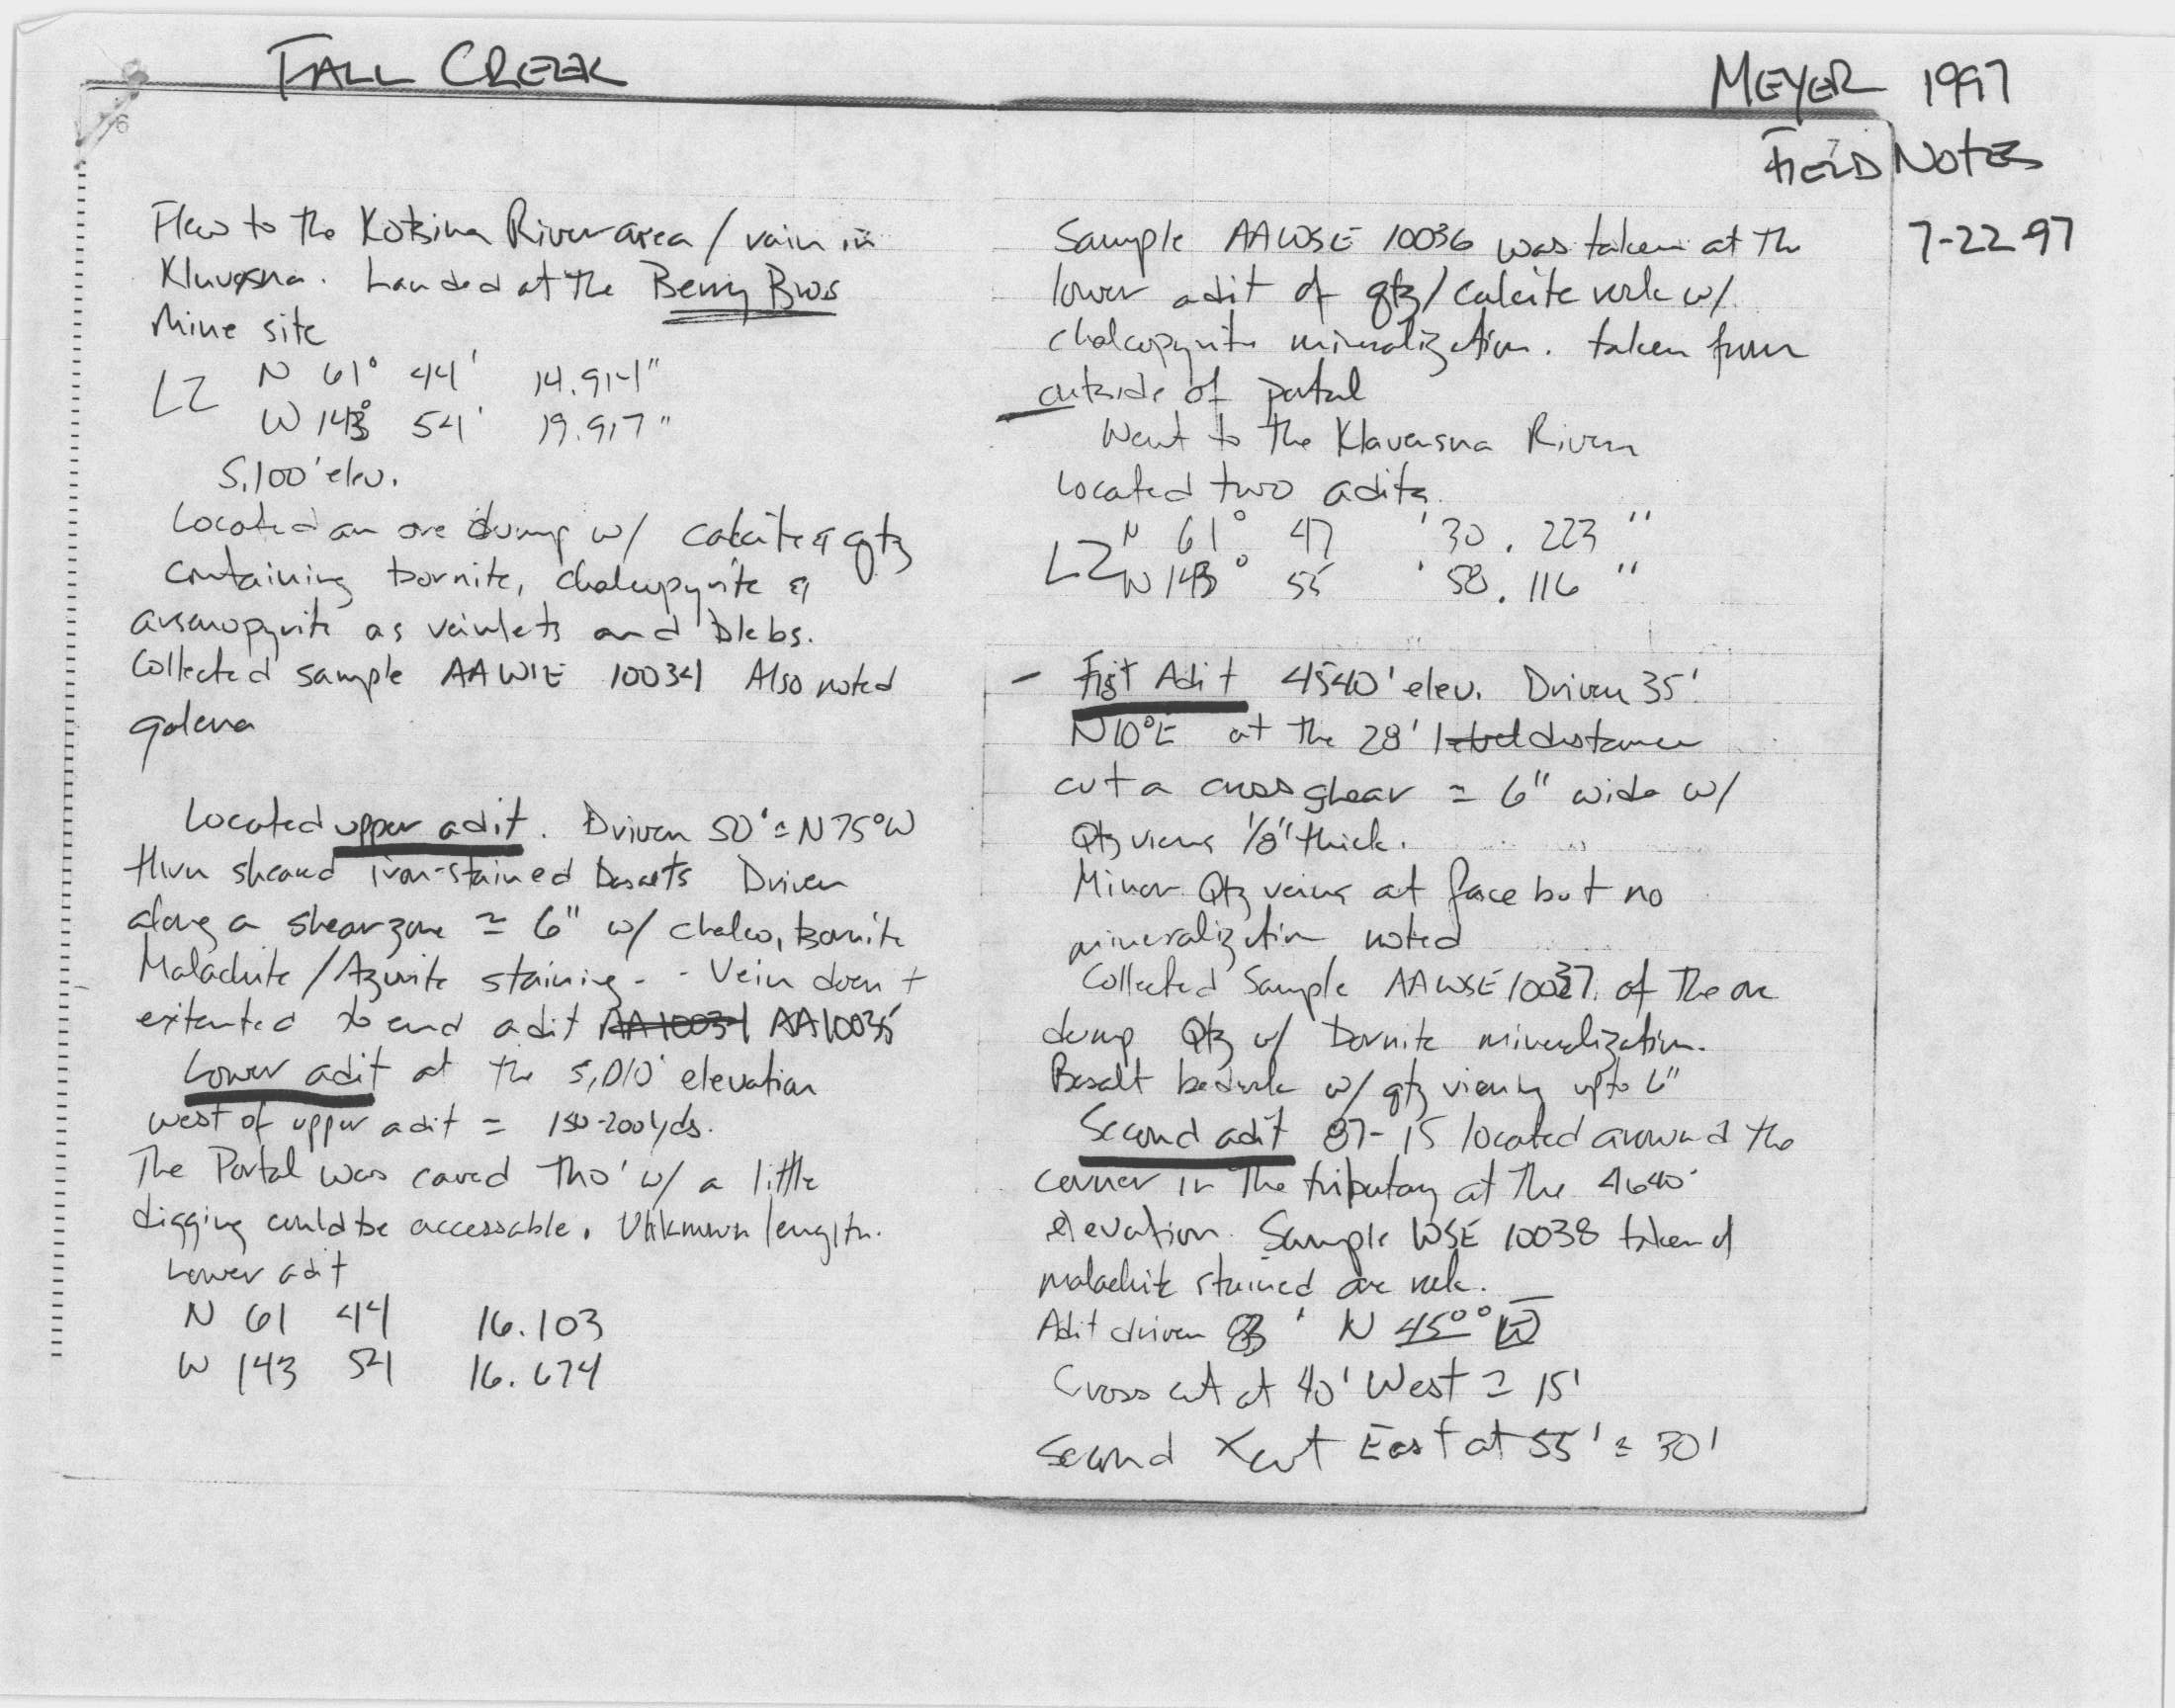 FALL CREEK
MEYER 1997
FIELD NOTES
7-22-97
6
7
Flew to the Kotsina River area / rain in
Kluvesna. Landed at the Berry Bros
Mine site
LZ N 61° 44' 14.914"
W 143° 54' 19.917"
5,100' elev.
Located an ore dump w/ calcite & qtz
containing bornite, chalcopyrite &
arsenopyrite as veinlets and blebs.
Collected sample AAWSE 10034 Also noted
galena
Located upper adit. Driven 50' ≃ N75°W
thru sheared iron-stained basalts Driven
along a shear zone ≃ 6" w/ chalco, bornite
Malachite/Azurite staining - - Vein doen t
extented to end adit AA10034 AA10035
Lower adit at the 5,010' elevation
west of upper adit ≃ 150-200 yds.
The Portal was caved tho' w/ a little
digging could be accessable. Unknown length.
Lower adit
N 61 44 16.103
W 143 54 16.674
Sample AAWSE 10036 was taken at the
lower adit of qtz/calcite rock w/
chalcopyrite mineralization. taken from
outside of portal
Went to the Klavensna River
Located two adits.
LZ N 61° 47 ' 30.223 "
W 143° 55 ' 58.116 "
- First Adit 4540' elev. Driven 35'
N10°E at the 28' level distance
cut a cross shear ≃ 6" wide w/
Qtz viens 1/8" thick.
Minor Qtz veins at face but no
mineralization noted
Collected Sample AAWSE 10037. of the ore
dump Qtz w/ bornite mineralization.
Basalt bedrock w/ qtz viening up to 6"
Second adit 87-15 located around the
corner in the tributary at the 4640'
elevation. Sample WSE 10038 taken of
malachite stained ore rock.
Adit driven ' N 45°° W
Cross cut at 40' West ≃ 15'
Second Xcut East at 55' ≃ 30'